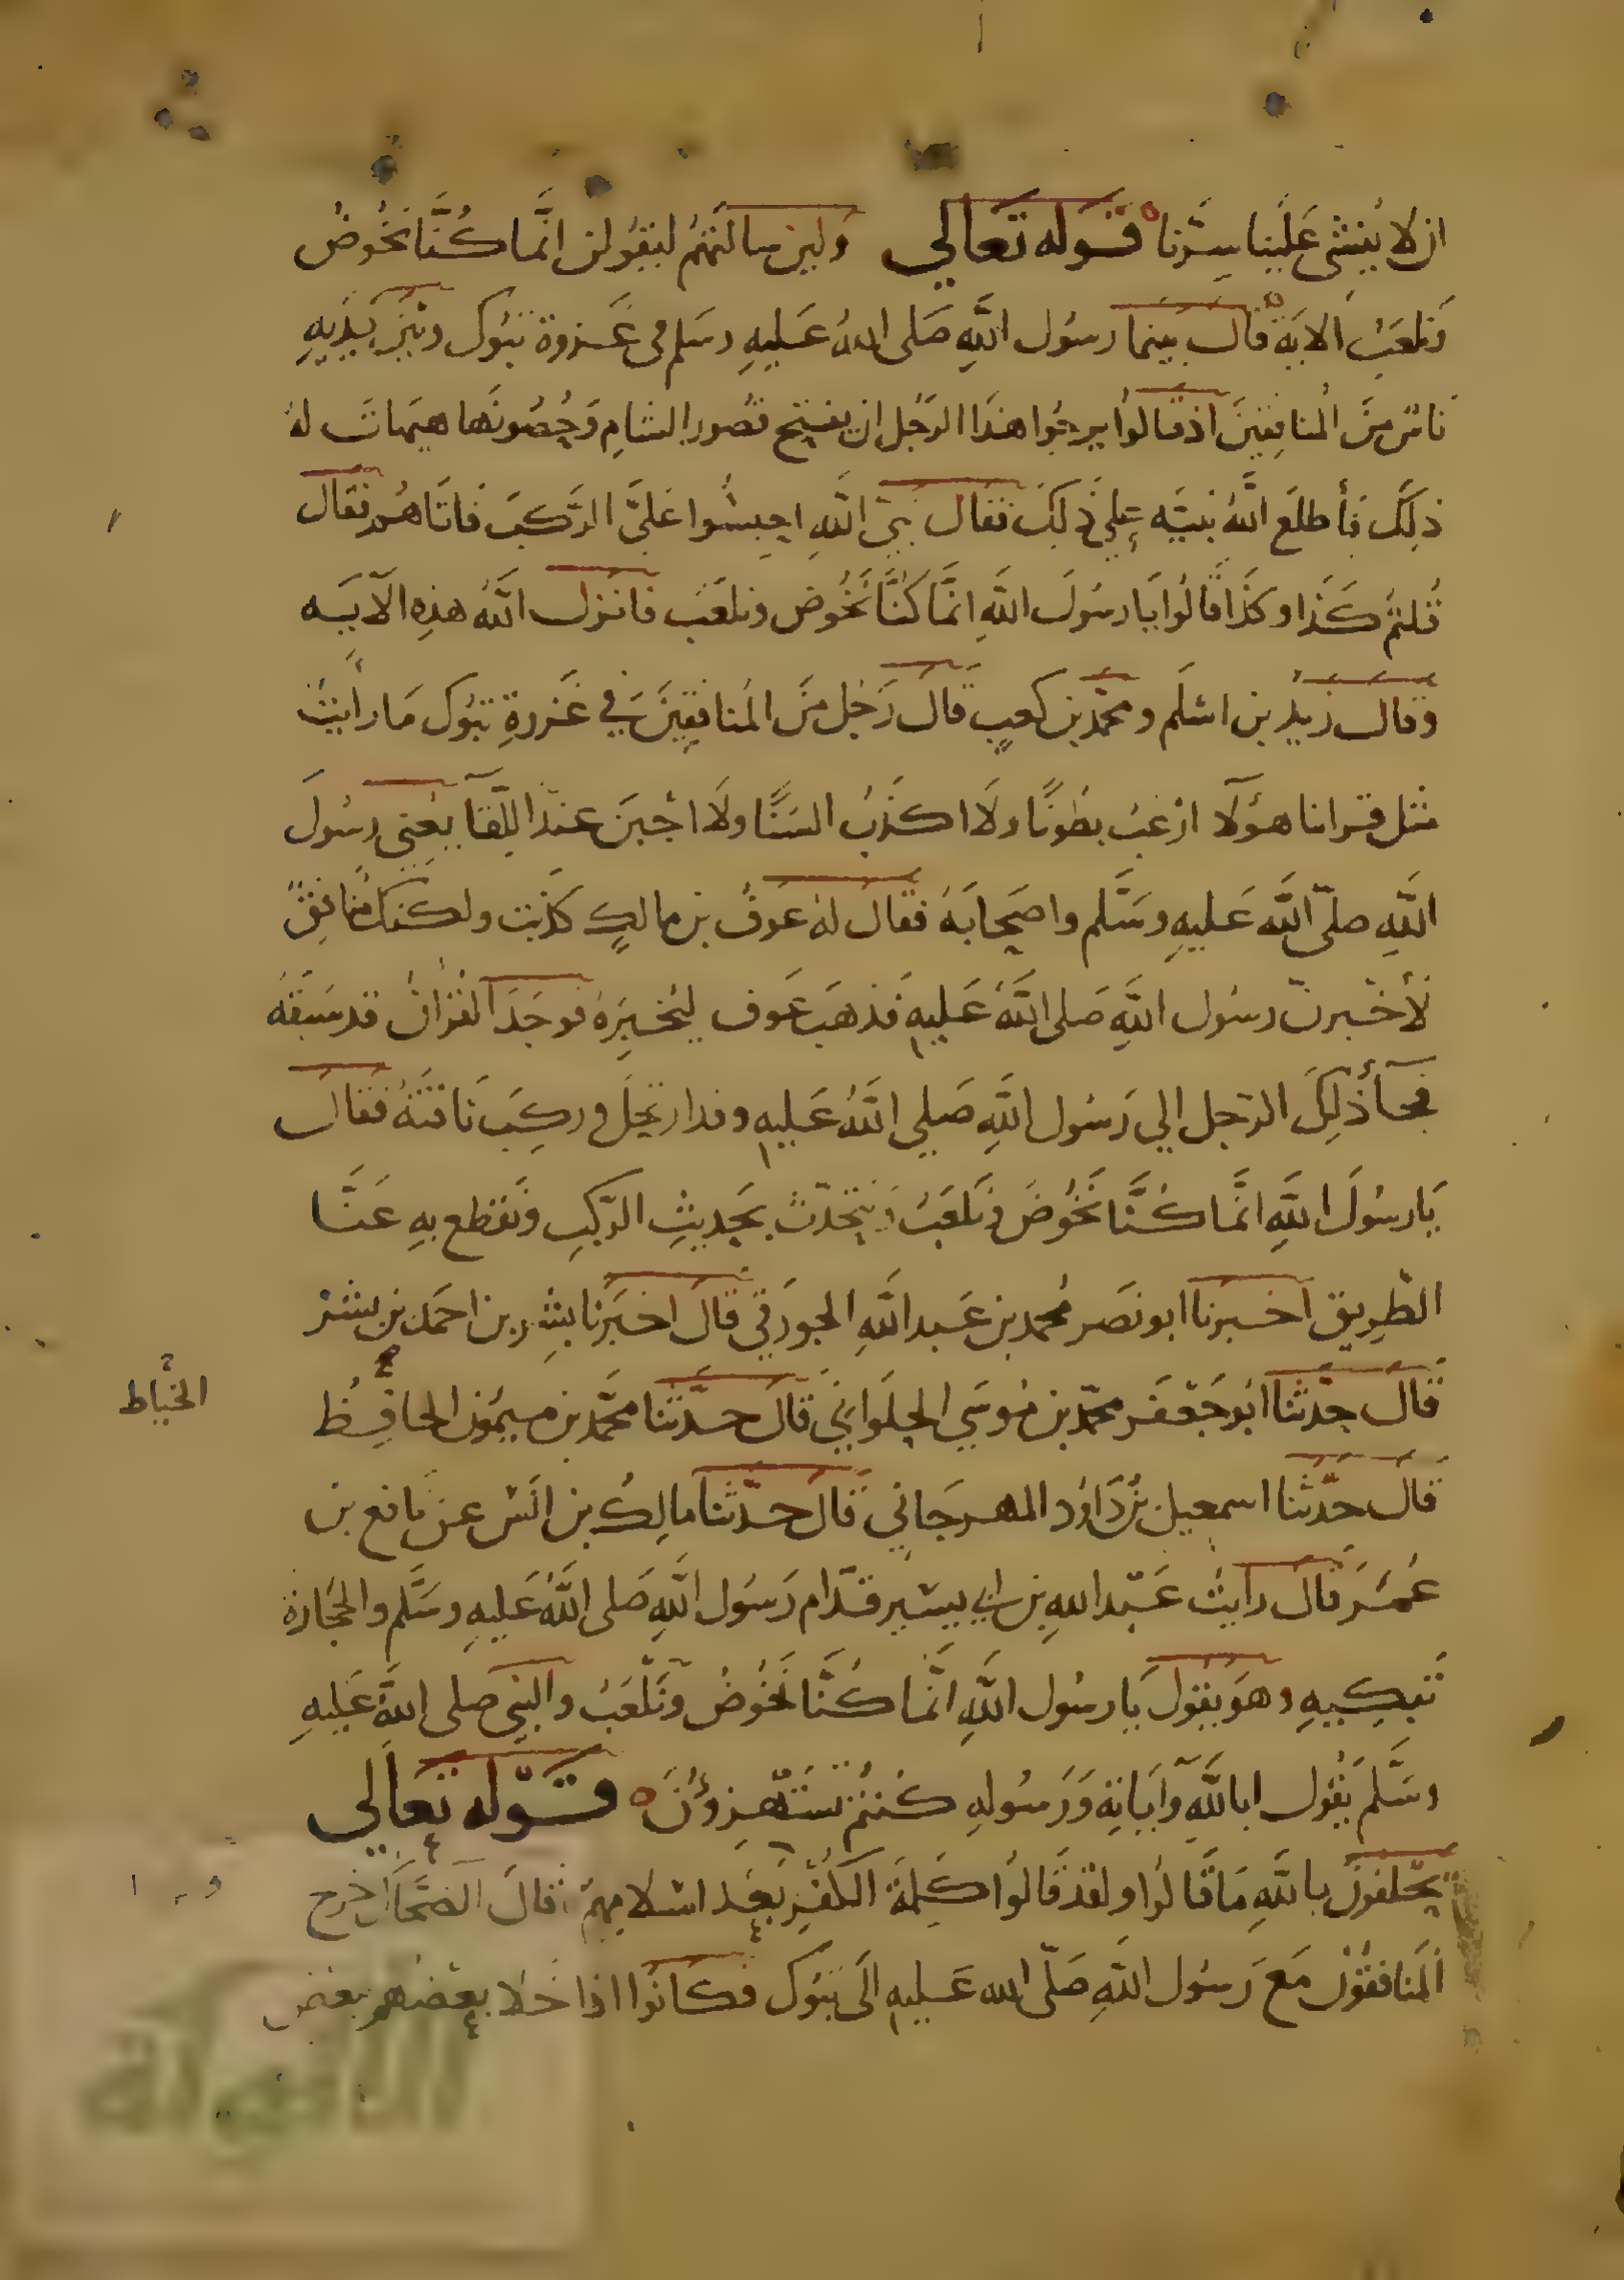 ان لا يُفشى عَلَينا سِرّنا قوله تعالى ولئن سالتهم ليقولن انَّما كُنَّا نَخُوضُ
وَنلعَبُ الايَة قال بينما رسُول اللَّهِ صَلى اللهُ عَليهِ وسَلم فى غَزوة تبُوك وبَيْن يَديهِ
نَاسٌ مِنَ المُنافِقينَ اذ قالوا يرجُوا هذَا الرَّجُل ان يفتح قصُور الشامِ وَحُصُونَها هيهات لهُ
ذلِكَ فأطلَع اللَّهُ نبيَّه عَلى ذلِكَ فقال نبيّ اللَّهِ احبِسُوا عَلىَّ الرَّكبَ فَاتَاهُم فقال
قُلتُم كَذا وكذَا قَالُوا يَا رسُولَ اللَّهِ انَّما كنَّا نَخُوض ونلعَب فانزل اللَّهُ هذِهِ الآيَه
وقال زَيدُ بن اسْلَم ومحمَّد بن كعبٍ قال رَجُل مِنَ المُنافِقِينَ في غَزوةِ تبُوك مَا رأيتُ
مثل قرانا هؤلآ ارْغبَ بطُونًا ولَا اكذبَ السُنًا ولَا اجْبنَ عندَ اللّقآ يعنى رسُولَ
اللَّهِ صلّى اللَّه عَليهِ وسَلَّم واصحَابَهُ فقال لهُ عَوفُ بن مالكٍ كذَبت ولكنك مُنافِقٌ
لأخْبرنّ رسُول اللَّهِ صَلى اللَّهُ عَليهِ فَذهَب عَوف ليُخبِرَهُ فوجَدَ القرْآنَ قد سَبقَهُ
فجآ ذلِكَ الرّجل الي رَسُول اللَّهِ صَلي اللَّهُ عَليهِ وقد ارتحَل وركِبَ نَاقتَهُ فقال
يَا رسُولَ اللَّهِ انَّما كُنَّا نَخُوضَ ونَلعَبُ ونتحدّث بحَديثِ الرّكبِ ونَقطع بهِ عَنَّا
الطّرِيق اخبرنا ابو نصَر مُحمد بن عَبد اللَّهِ الجوزَقي قالَ اخبَرنا بشِر بن احمَد بن بشر
قَالَ حدّثنا ابُو جَعْفَر محمّد بن مُوسَي الحلوَاني قَالَ حدَّثنا محَمَّد بن ميمُون الحافِظ
الخيَّاط
قَال حدَّثنا اسمعيل بنُ دَاوُد المهرجَاني قَال حدّثنا مالِكُ بن انَسْ عن نَافع بن
عُمَرَ قَالَ رايتُ عَبْد اللهِ بن ابي يسَير قدّام رَسُول اللَّهِ صَلى اللَّهُ عَليهِ وسَلَّم والحجَارة
تنكبهِ وهوَ يقول يَا رسُول اللَّهِ انَّما كُنَّا نَخُوضُ ونَلْعَبُ والنبي صلى اللَّهُ عَليهِ
وسَلَّم يَقُول ابا للَّهِ وآيَاتِهِ وَرَسُولهِ كنتُم تستَهزؤُنَ قوله تعالي
يَحْلفونَ باللَّهِ مَا قَالوُا ولقد قَالوُا كلِمَةَ الكُفرِ بَعْدَ اسْلامِهمْ قالَ الضحَّاك خرج
المُنافقُوْن مَعَ رَسُول اللَّهِ صَلّى الله عَليهِ الَى تبُوك فكانُوا اذا خَلا بعْضُهم ببعْض